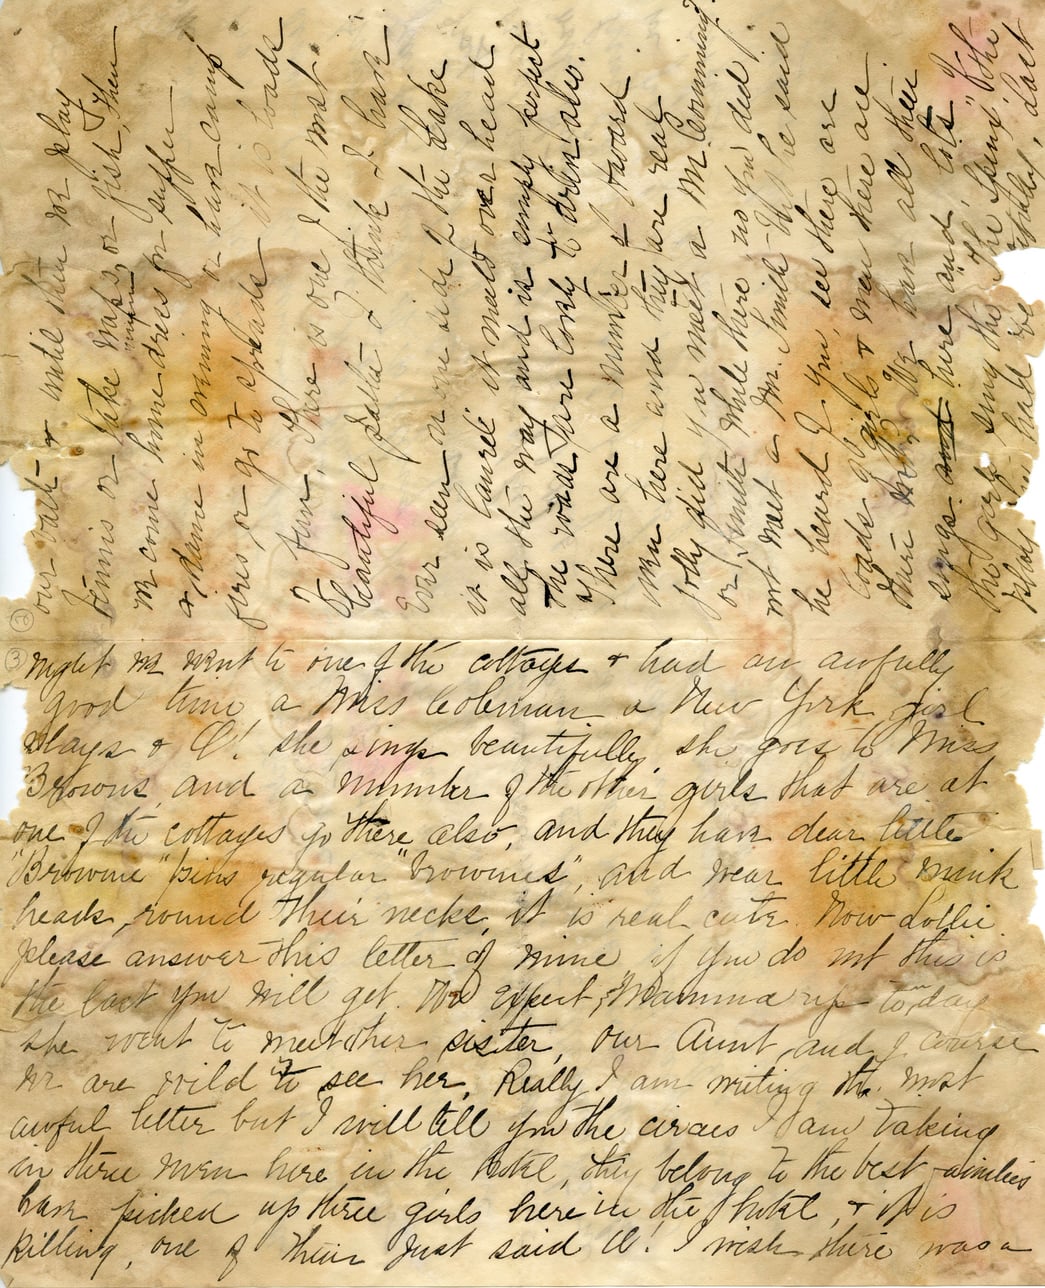 ②
our bath & until then we play
Tennis or take naps, or fish, Then
we come home dress for supper
& dance in evening or have camp
fires, or go to spreads it is loads
of fun, There is one of the most
beautiful paths I think I have
ever seen on one side of the Lake
it is laurel it meets over head
all the way and is simply perfect
The roads are lovely to drive also.
There are a number of Harvard
men here and they are real
jolly did you meet a Mr Cumming
or Smith while there no you did
not meet a Mr. Smith - Ah he said
he heard of you, see there are
loads of girls & men there are
three We have all their
songs here and lots
the girls sing the "Spring" "The
last
③
night we went to one of the cottages & had an awfully
good time a Miss Coleman a New York girl
plays & O! she sings beautifully, she goes to Miss
Browns, and a number of the other girls that are at
one of the cottages go there also, and they have dear little
"Brownie" pins regular "brownies", and wear little mink
heads, round their necks, it is real cute. Now Lollie
please answer this letter of mine if you do not this is
the last you will get. We expect, Mamma up to-day
she went to meet her sister, our Aunt, and of course
we are wild to see her, Really I am writing the most
awful letter but I will tell you the circus I am taking
in three men here in the hotel, they belong to the best families
have picked up three girls here in the hotel, & it is
killing, one of them just said O! I wish there was a